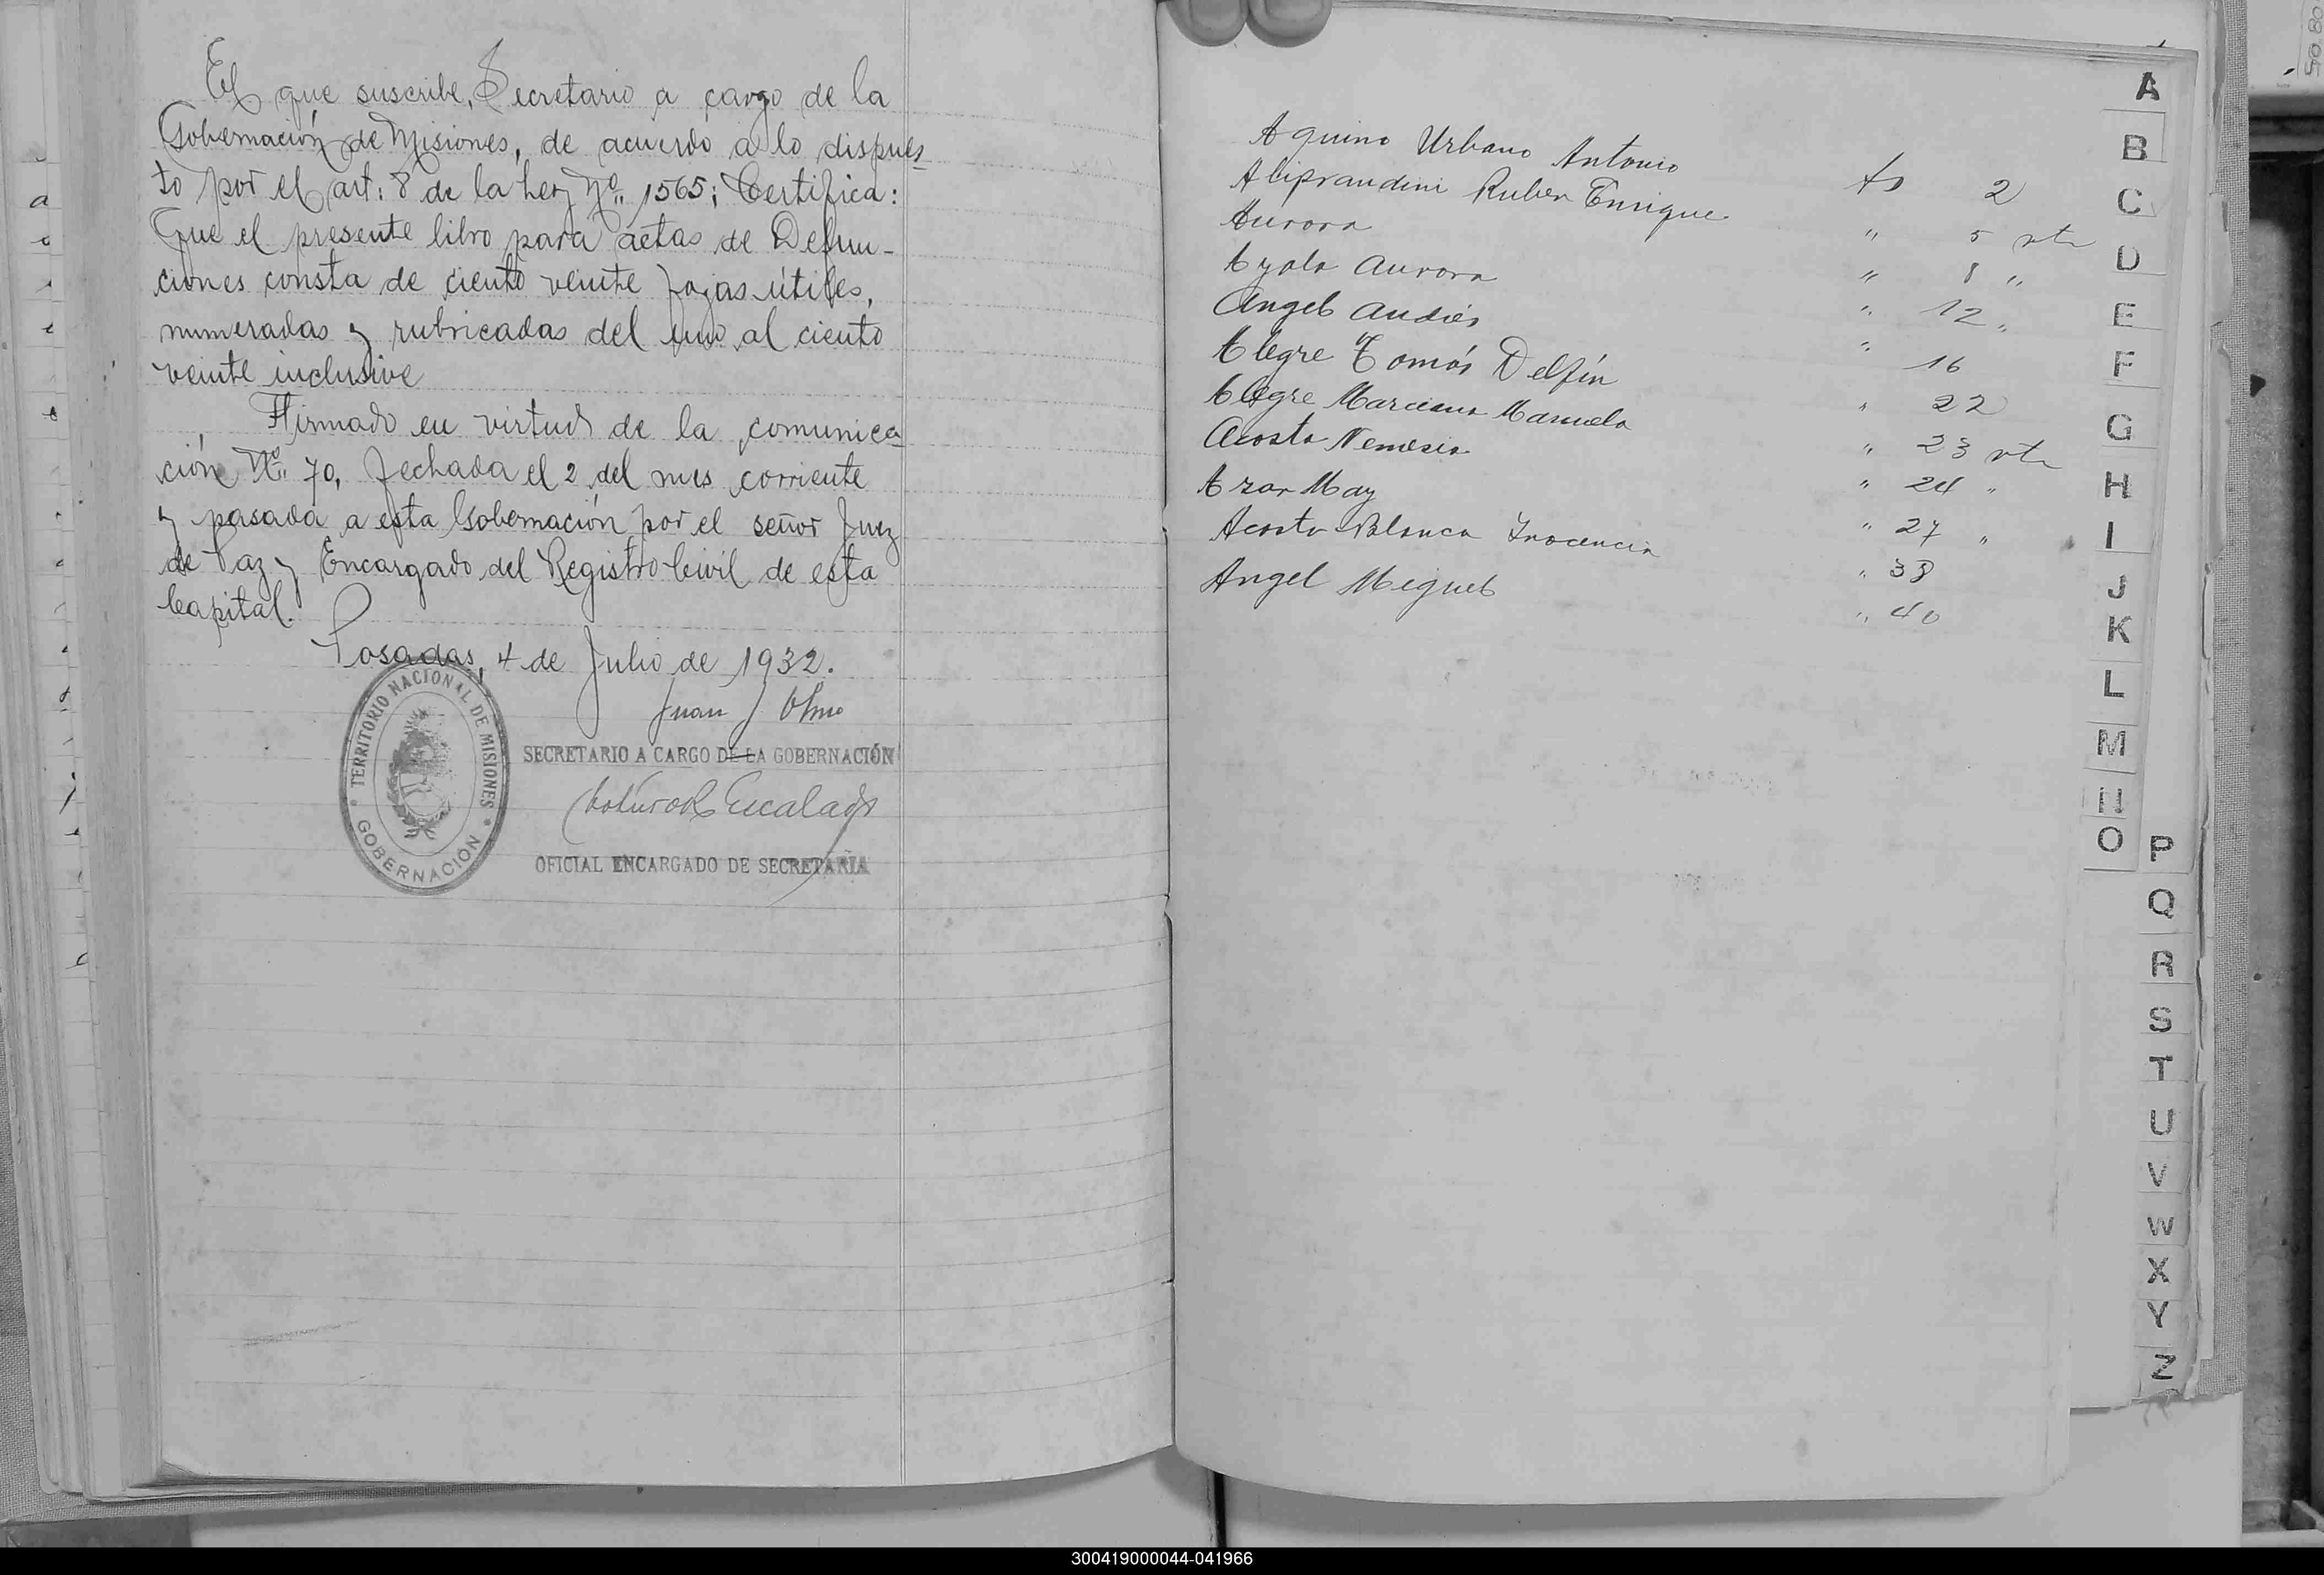 El que suscribe, Secretario a cargo de la
Gobernación de Misiones, de acuerdo a lo dispues-
to por el art: 8 de la Ley Nº 1565; Certifica:
Que el presente libro para actas de Defun-
ciones consta de ciento veinte fojas útiles,
numeradas y rubricadas del uno al ciento
veinte inclusive
Firmado en virtud de la comunica-
ción Nº 70, fechada el 2 del mes corriente
y pasada a esta Gobernación por el señor Juez
de Paz y Encargado del Registro Civil de esta
Capital.
Posadas, 4 de Julio de 1932.
Juan J.
SECRETARIO A CARGO DE LA GOBERNACIÓN
Escalada
OFICIAL ENCARGADO DE SECRETARÍA
TERRITORIO NACIONAL DE MISIONES
GOBERNACIÓN
Aquino Urbano Antonio fs 2
Aliprandini Ruben Enrique " 5 vta
Aurora " 8 "
Ayala Aurora " 12 "
Angel Andrés " 16
Alegre Tomás Delfín " 22
Alegre Marciana Manuela " 23 vta
Acosta Nemesia " 24 "
Azar May " 27 "
Acosta Blanca Inocencia " 38
Angel Miguel " 40
A
B
C
D
E
F
G
H
I
J
K
L
M
N
O
P
Q
R
S
T
U
V
W
X
Y
Z
300419000044-041966